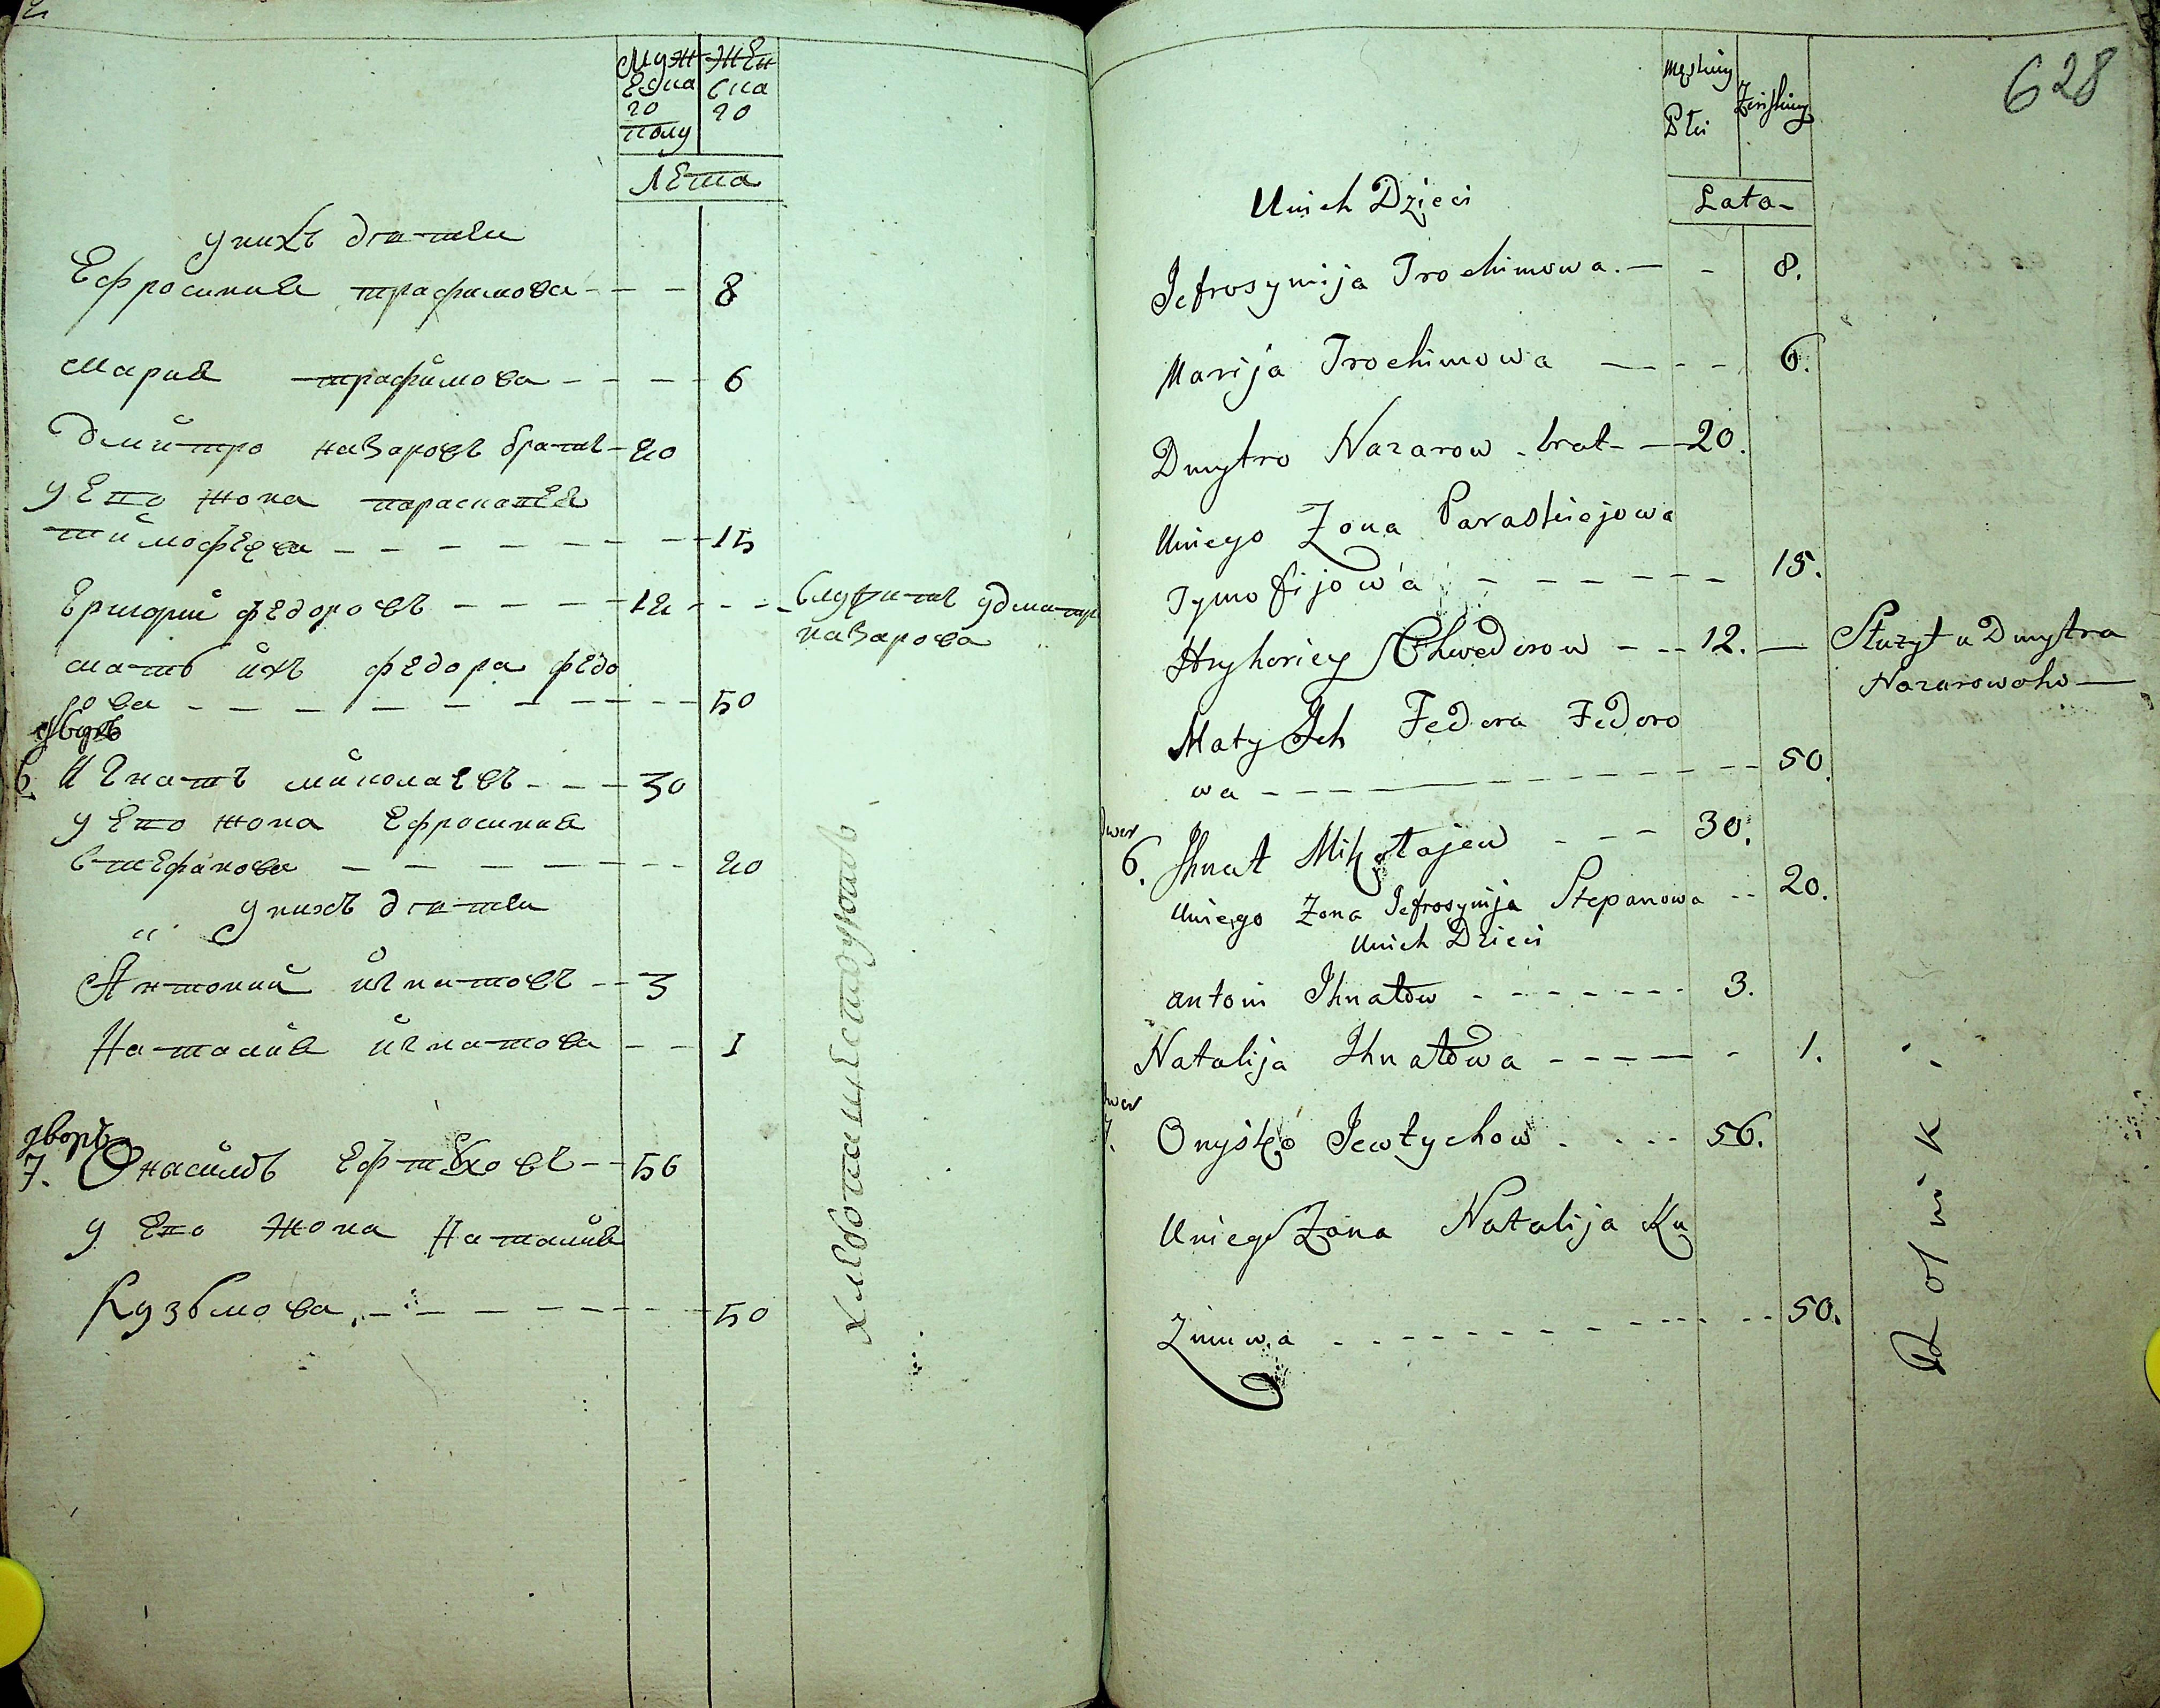 Муж
еска
го
полу
Жен
ска
го
Лета
у нихъ дѣти
Ефросиния трафимова - - - 8
Мария трафимова - - - 6
Дмитро назаровъ братъ - 20
у его жона парасковея
тимофеева - - - - - - - - 15
Григорий федоровъ - - - - 12 - - - Служитъ у дмитр
назарова
мать ихъ федора федо
рова - - - - - - - - - - 50
дворъ
6. Игнатъ миколаевъ - - - 30
у его жона Ефросиния
Стефанова - - - - - - 20
у нихъ дѣти
Антоний игнатовъ - - 3
Наталия игнатова - - 1
дворъ
7. Онисимъ Ефтиховъ - - 56
у его жона Наталия
Кузьмова - - - - - - - - 50
хлебопашествуютъ
628
Męskiey
Płci
Żeńskiey
Lata -
U nich Dzieci
Jefrosynija Trochimowa. - - 8.
Marija Trochimowa - - - - 6.
Dmytro Nazarow - brat - - 20.
U niego Zona Paraskiejowa
Tymofijowa - - - - - - - 15.
Hryhoriey Chwedorow - - - 12. - Służyt u Dmytra
Nazarowoho -
Maty Jch Fedora Fedoro
wa - - - - - - - - - - 50.
dwor
6. Jhnat Mikołajew - - - 30.
U niego Zona Jefrosynija Stepanowa - - 20.
U nich Dzieci
Antoni Jhnatow - - - - - - - 3.
Natalija Jhnatowa - - - - - - 1.
dwor
7. Onyśko Jewtychow - - - - 56.
U niego Zona Natalija Ku
zmowa - - - - - - - - - - 50.
Rolnik